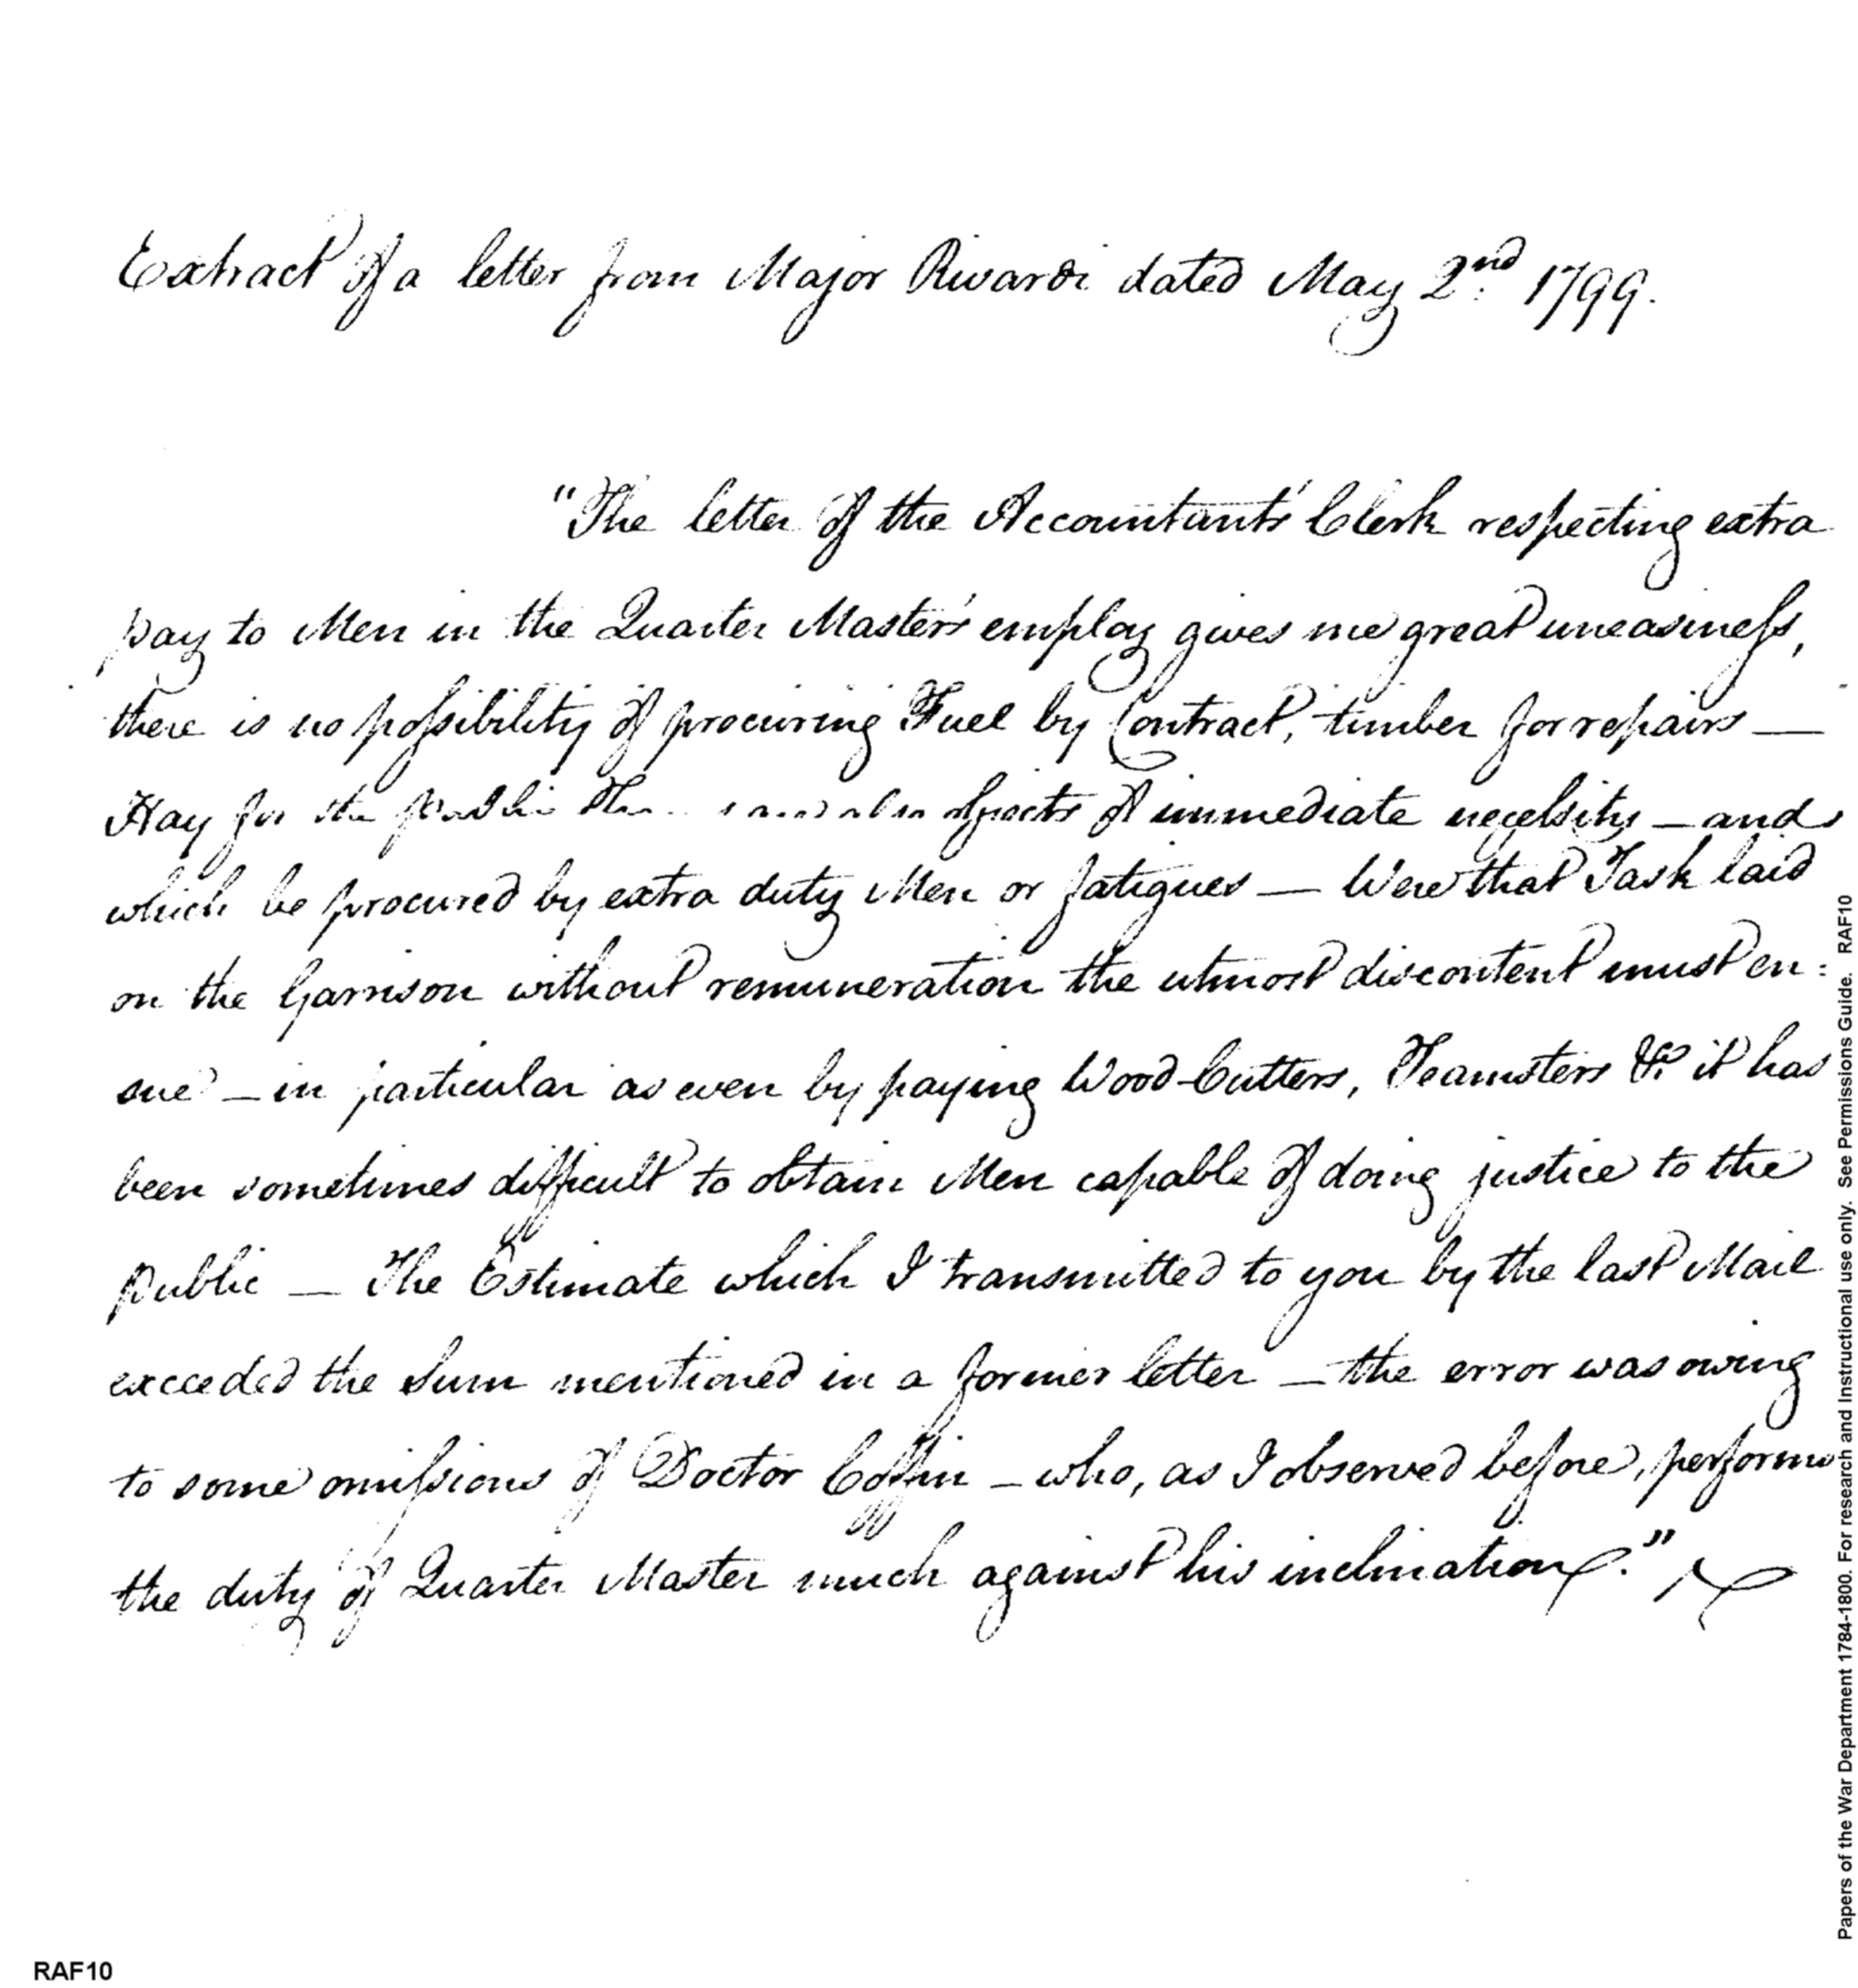 Extract of a letter from Major Rivardi dated May 2nd 1799.
"The letter of the Accountant's Clerk respecting extra
pay to Men in the Quarter Master's employ gives me great uneasiness,
there is no possibility of procuring Fuel by Contract, timber for repairs —
Hay for the public also objects of immediate necessity — and
which be procured by extra duty Men or fatigues — Were that Task laid
on the Garrison without remuneration the utmost discontent must en:
sue — in particular as even by paying Wood-Cutters, Teamsters &c it has
been sometimes difficult to obtain Men capable of doing justice to the
public — The Estimate which I transmitted to you by the last Mail
exceeded the Sum mentioned in a former letter — the error was owing
to some omissions of Doctor Coffin — who, as I observed before, performs
the duty of Quarter Master much against his inclination."
Papers of the War Department 1784-1800. For research and Instructional use only. See Permissions Guide. RAF10
RAF10